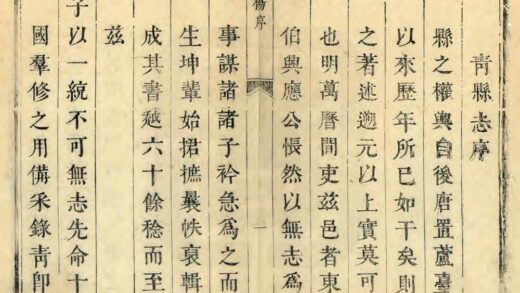 青縣志序
縣之權輿自後唐置蘆臺
以來歷年所已如干矣則
之著述遡元以上實莫可
也明萬曆間吏茲邑者東
伯典應公悵然以無志為
楊序
一
事謀諸諸子衿急為之而
生坤輩始捃摭曩帙裒輯
成其書越六十餘稔而至
茲
子以一統不可無志先命十
國羣修之用備采錄青卽